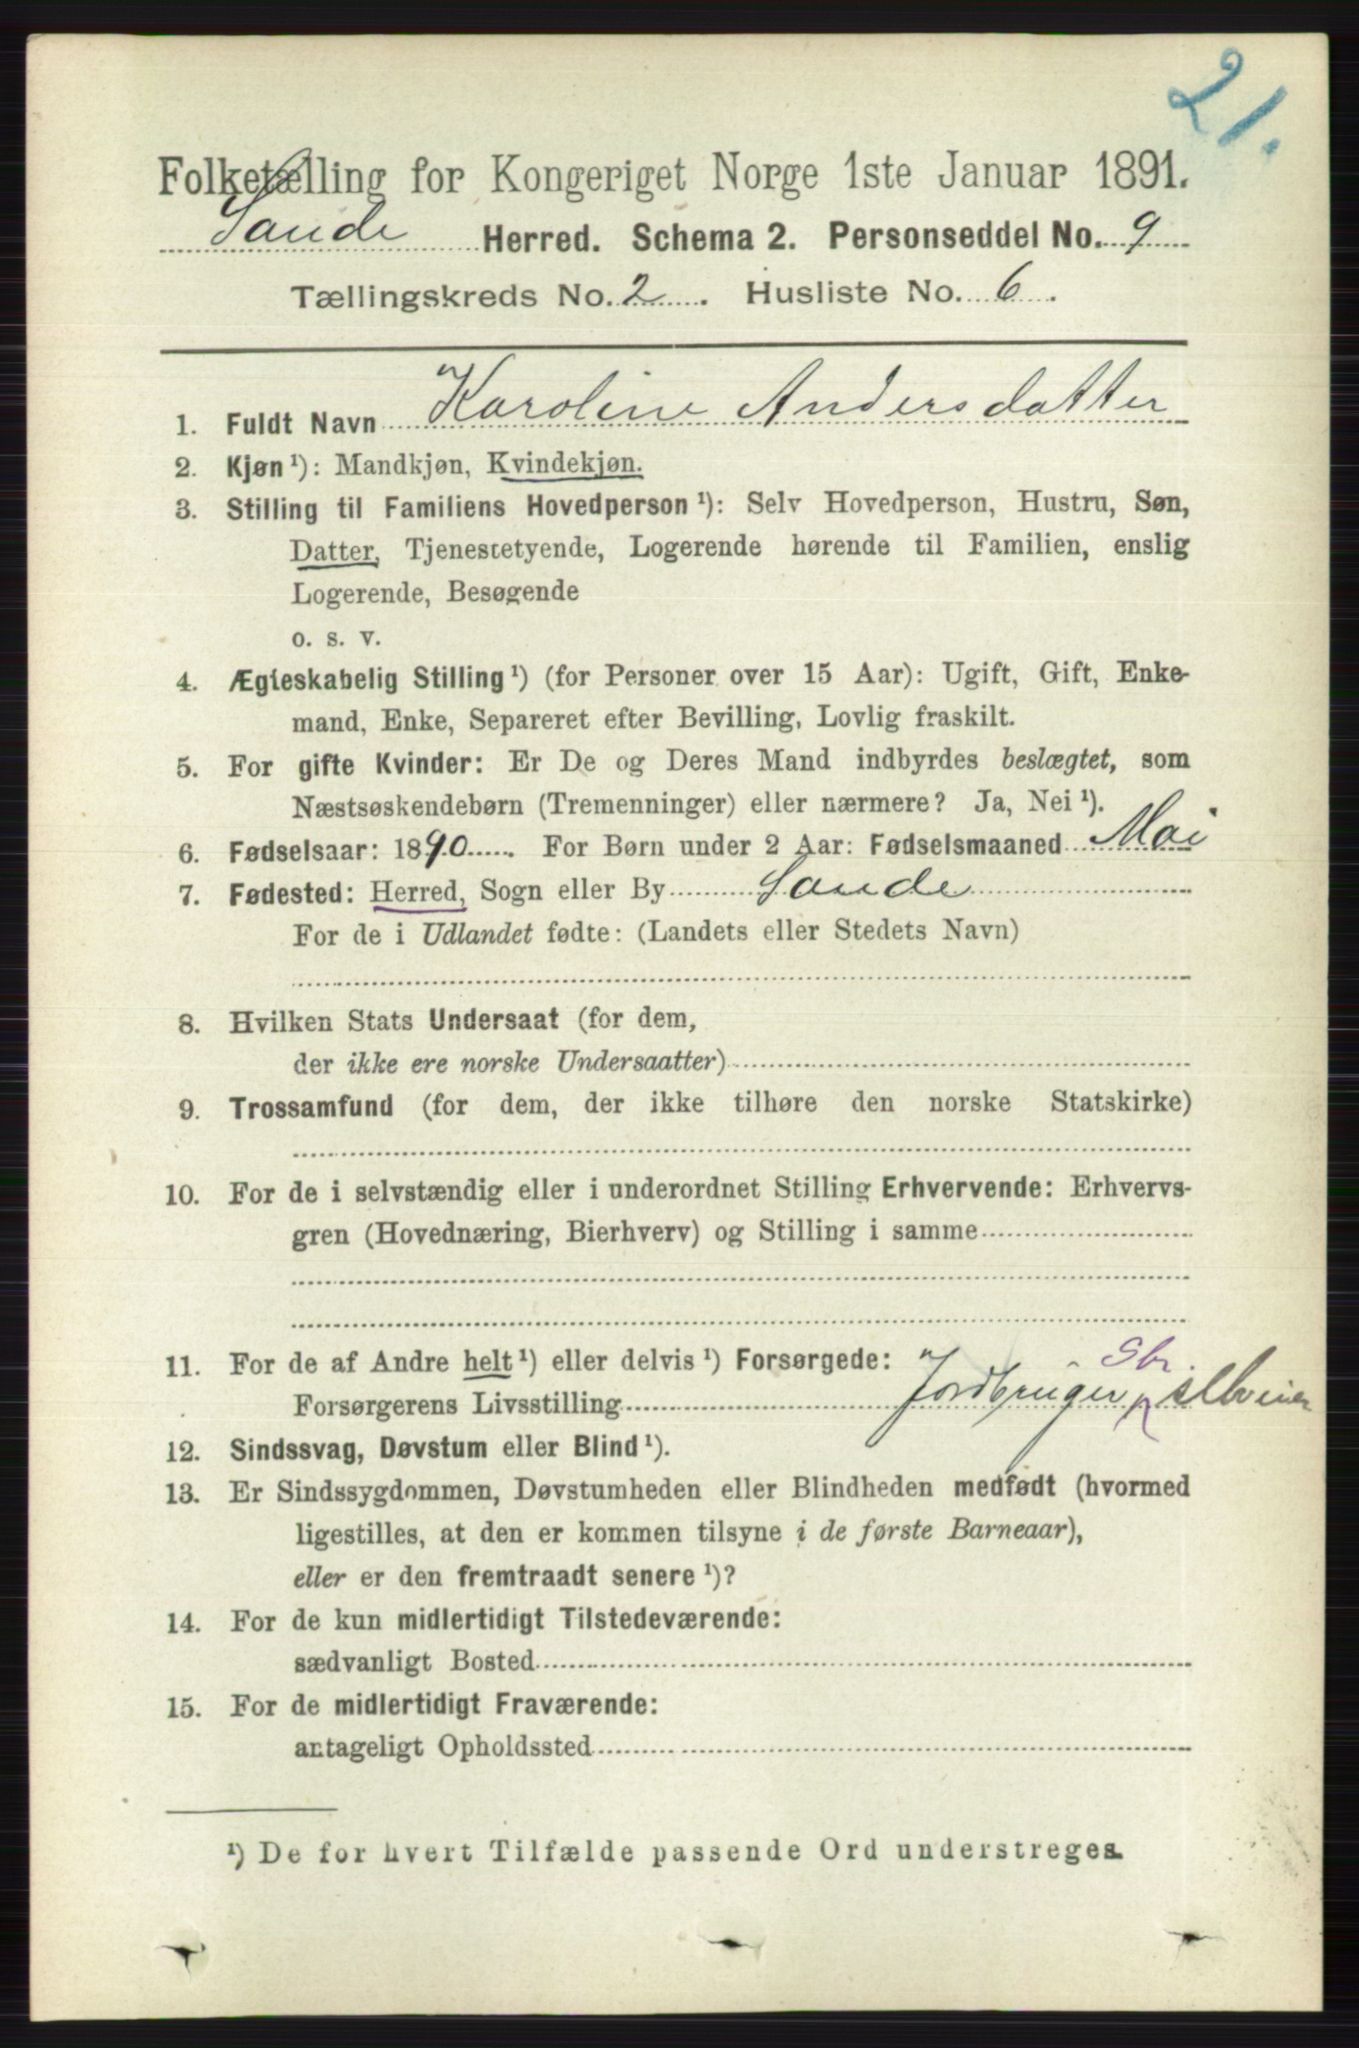 21.
Folketælling for Kongeriget Norge 1ste Januar 1891.
Sande Herred. Schema 2. Personseddel No. 9
Tællingskreds No. 2. Husliste No. 6.
1. Fuldt Navn Karoline Andersdatter
2. Kjøn ¹): Mandkjøn, Kvindekjøn.
3. Stilling til Familiens Hovedperson ¹): Selv Hovedperson, Hustru, Søn,
Datter, Tjenestetyende, Logerende hørende til Familien, enslig
Logerende, Besøgende
o. s. v.
4. Ægteskabelig Stilling ¹) (for Personer over 15 Aar): Ugift, Gift, Enke-
mand, Enke, Separeret efter Bevilling, Lovlig fraskilt.
5. For gifte Kvinder: Er De og Deres Mand indbyrdes beslægtet, som
Næstsøskendebørn (Tremenninger) eller nærmere? Ja, Nei ¹).
6. Fødselsaar: 1890. For Børn under 2 Aar: Fødselsmaaned Mai
7. Fødested: Herred, Sogn eller By Sande
For de i Udlandet fødte: (Landets eller Stedets Navn)
8. Hvilken Stats Undersaat (for dem,
der ikke ere norske Undersaatter)
9. Trossamfund (for dem, der ikke tilhøre den norske Statskirke)
10. For de i selvstændig eller i underordnet Stilling Erhvervende: Erhvervs-
gren (Hovednæring, Bierhverv) og Stilling i samme
11. For de af Andre helt ¹) eller delvis ¹) Forsørgede: Sbr.
Forsørgerens Livsstilling Jordbruger
12. Sindssvag, Døvstum eller Blind ¹).
13. Er Sindssygdommen, Døvstumheden eller Blindheden medfødt (hvormed
ligestilles, at den er kommen tilsyne i de første Barneaar),
eller er den fremtraadt senere ¹)?
14. For de kun midlertidigt Tilstedeværende:
sædvanligt Bosted
15. For de midlertidigt Fraværende:
antageligt Opholdssted
¹) De for hvert Tilfælde passende Ord understreges.